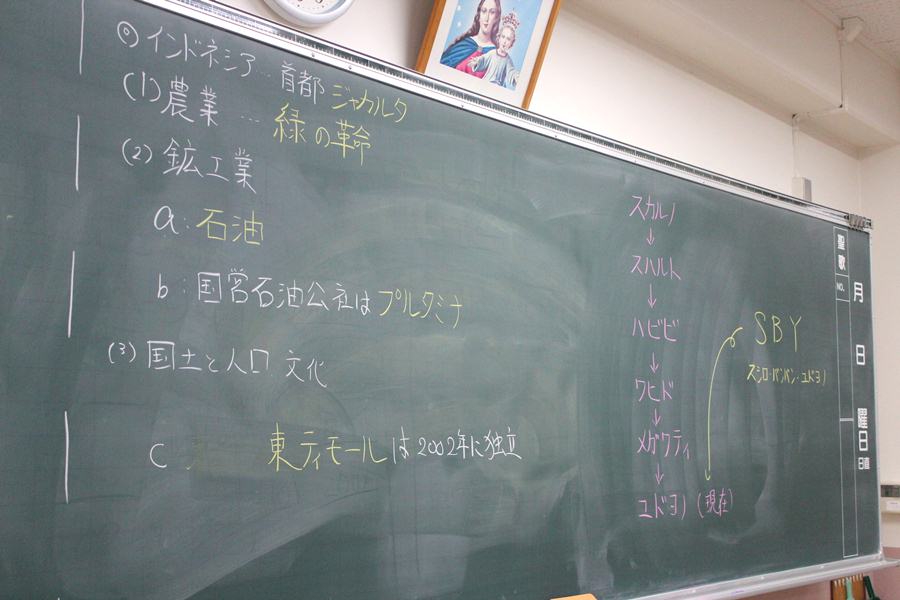 ◎インドネシア…首都 ジャカルタ
(1) 農業 … 緑の革命
(2) 鉱工業
a: 石油
b: 国営石油公社は プルタミナ
(3) 国土と人口. 文化
c 東ティモールは2002年に独立
スカルノ
↓
スハルト
↓
ハビビ
↓
ワヒド
↓
メガワティ
↓
ユドヨノ (現在)
SBY
スシロ・バンバン・ユドヨノ
聖歌 NO.
月
日
曜日
日直